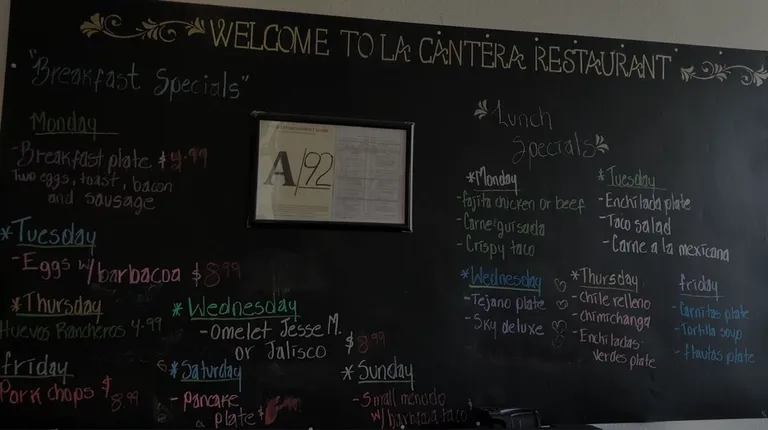 WELCOME TO LA CANTERA RESTAURANT
"Breakfast Specials"
Monday
- Breakfast plate $
Two eggs, toast, bacon
and sausage
*Tuesday
- Eggs w/barbacoa $8.99
*Thursday
Huevos Rancheros
*Wednesday
- Omelet Jesse M.
or Jalisco $8.99
friday
Pork chops $8.99
*Saturday
- pancake
plate
*Sunday
- Small menudo
w/barbacoa taco
A/92
Lunch
Specials
*Monday
- fajita chicken or beef
- Carne guisada
- Crispy taco
*Tuesday
- Enchilada plate
- Taco salad
- Carne a la mexicana
*Wednesday
- Tejano plate
- Sky deluxe
*Thursday
- chile relleno
- chimichanga
- Enchiladas
verdes plate
friday
- Carnitas plate
- Tortilla soup
- flautas plate